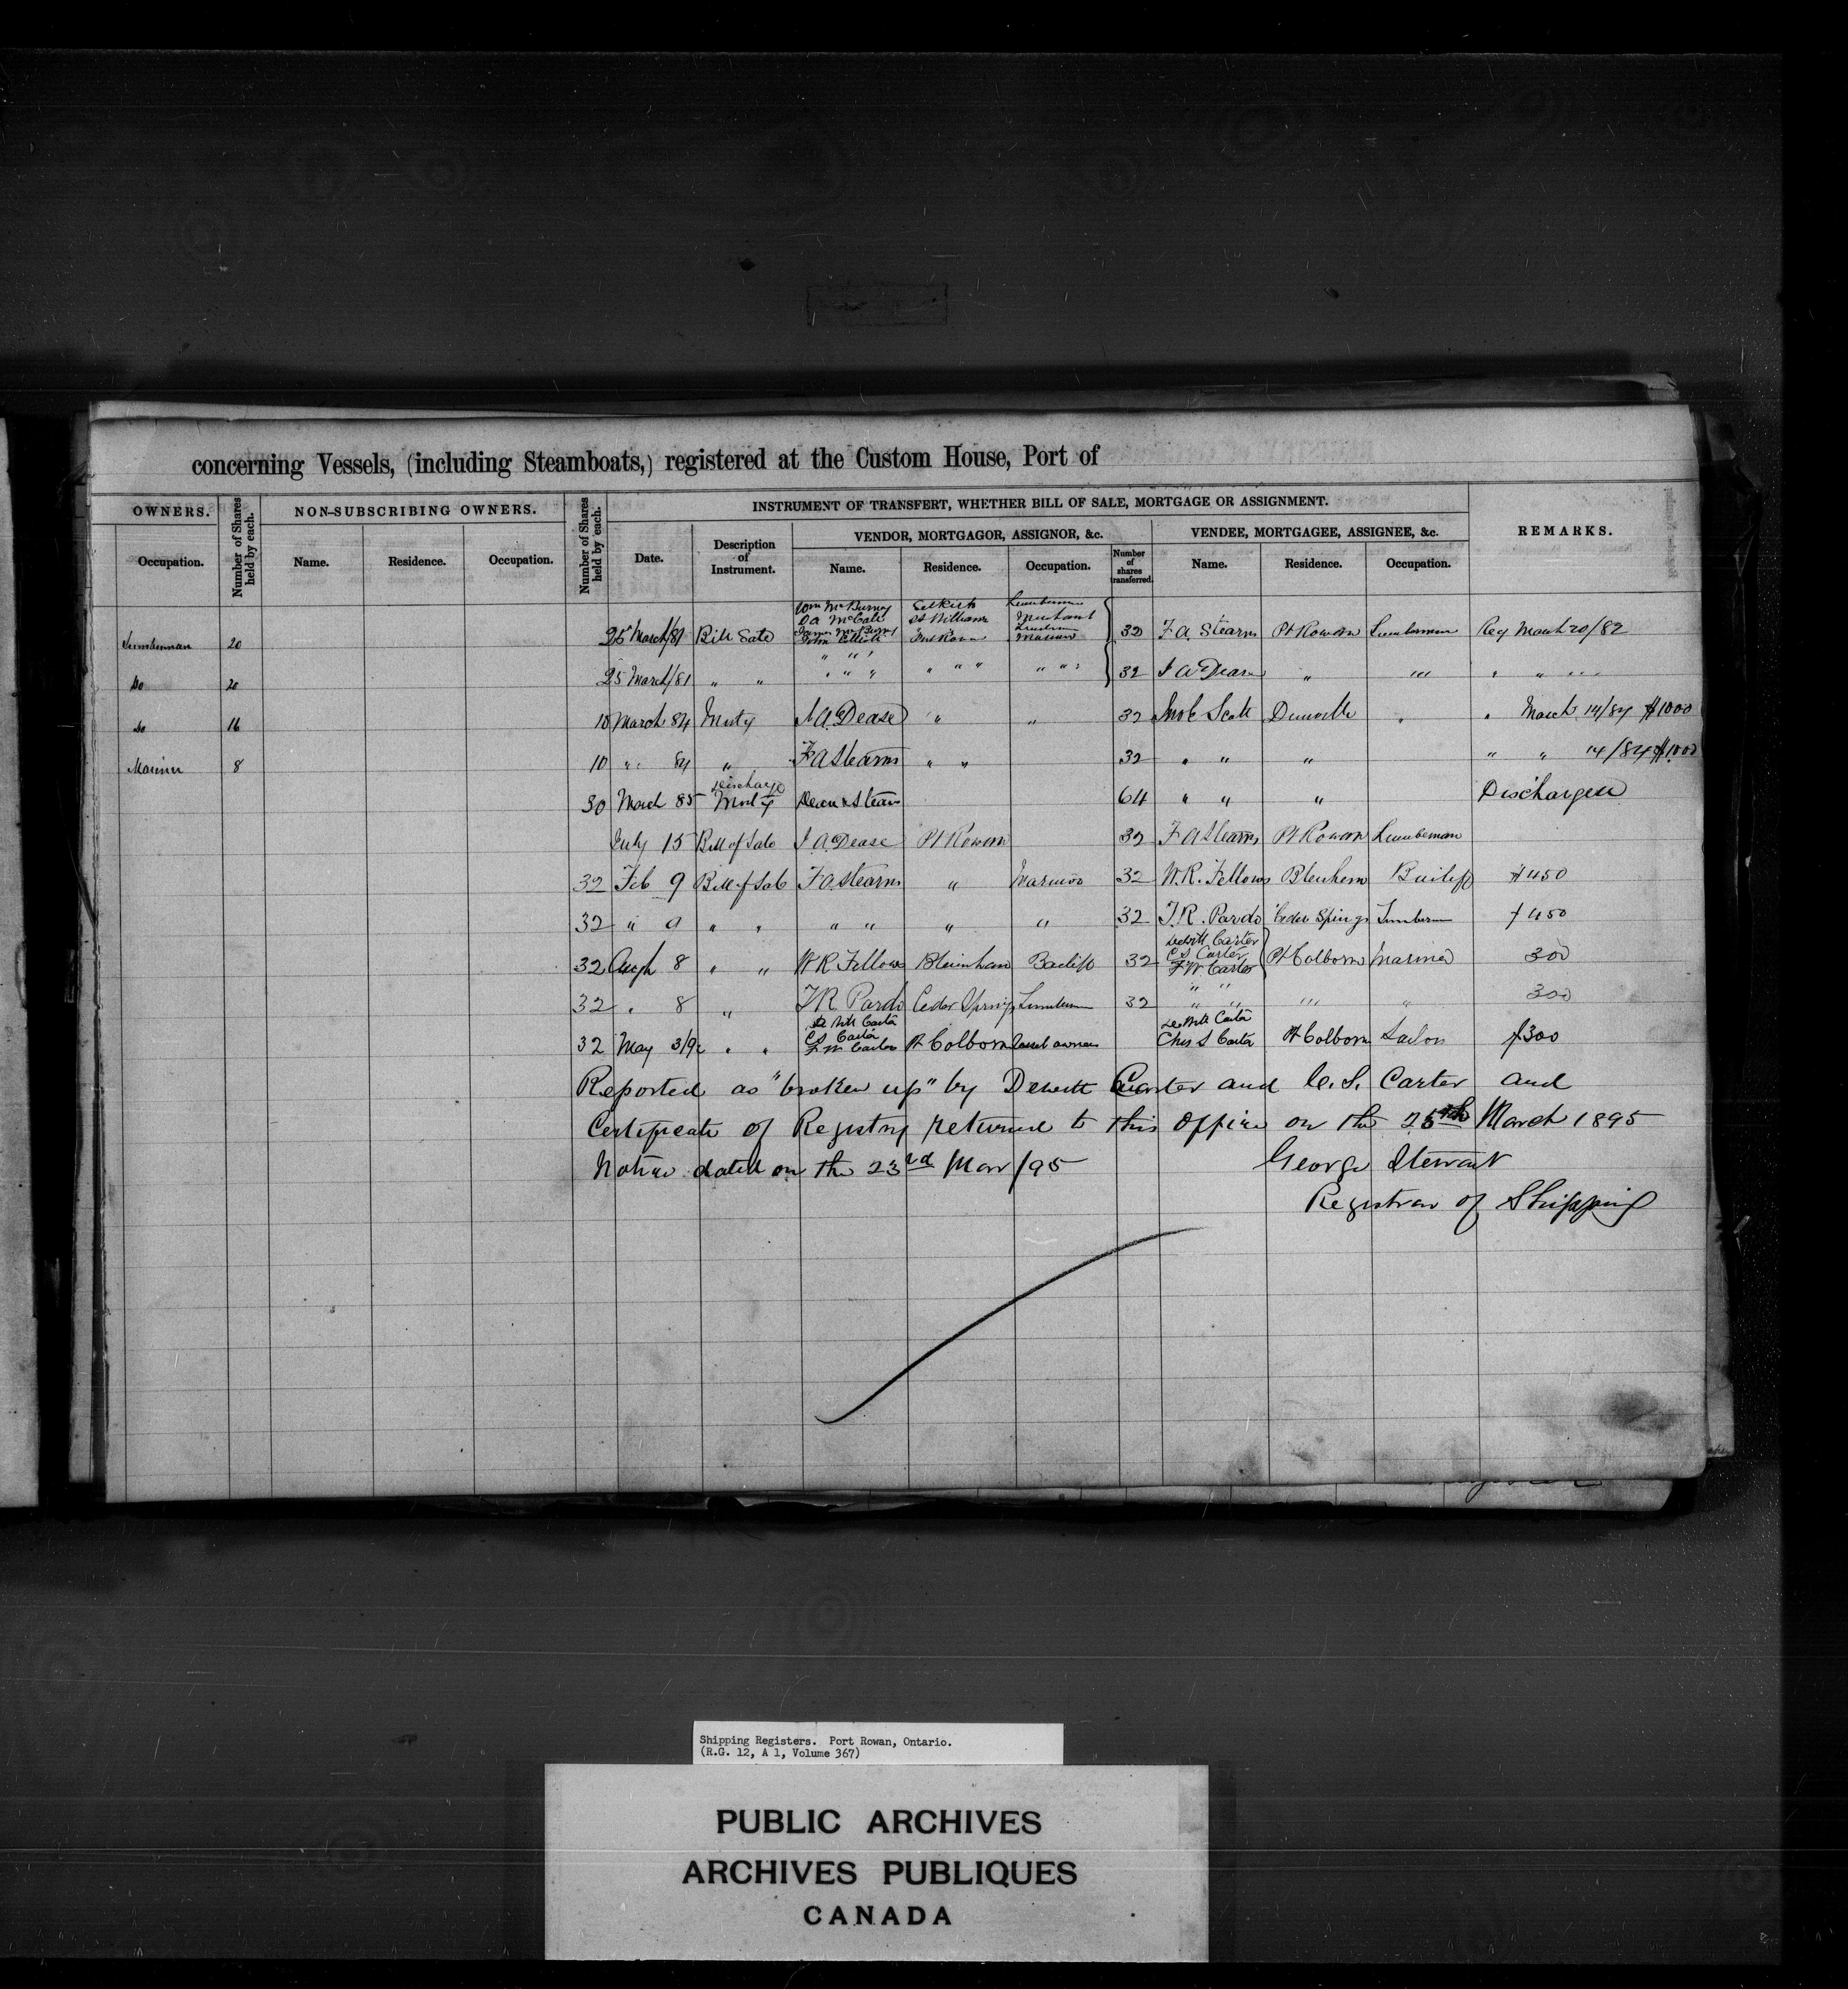 concerning Vessels, (including Steamboats,) registered at the Custom House, Port of
OWNERS.
Number of Shares held by each.
NON-SUBSCRIBING OWNERS.
Number of Shares held by each.
INSTRUMENT OF TRANSFERT, WHETHER BILL OF SALE, MORTGAGE OR ASSIGNMENT.
REMARKS.
VENDOR, MORTGAGOR, ASSIGNOR, &c.
VENDEE, MORTGAGEE, ASSIGNEE, &c.
Occupation. Name. Residence. Occupation. Date. Description of Instrument. Name. Residence. Occupation. Number of shares transferred. Name. Residence. Occupation.
Wm McBurney Selkirk Lumberman
D A McCall St Williams Merchant
Lumberman 20 25 March/81 Bill Sale John Elliott Mariner 32 F. A. Stearns Pt Rowan Lumberman Reg March 20/82
Do 20 25 March/81 " " " " " " " " " " " 32 " " " " "
Do 16 10 March 84 Mortg A. Dease " " 32 Scott Dunnville " " March 14/84 $1000
Mariner 8 10 " 84 " F A Stearns " " 32 " " " " " 14/84 $1000
30 March 85 Discharge Mortg 64 " " " Discharged
July 15 Bill of Sale A. Dease Pt Rowan 32 F A Stearns Pt Rowan Lumberman
32 Feb 9 Bill of Sale F A Stearns " 32 W. R. Fellows Blenheim Bailiff $450
32 " 9 " " " " " " 32 T. R. Pardo Cedar Springs $450
Dewitt Carter
C S Carter
32 Augh 8 " " W R Fellows Blenheim Bailiff 32 F W Carter Pt Colborne Mariner 300
32 " 8 " T R Pardo Cedar Springs 32 " " " " " " " " 300
De Witt Carter De Witt Carter
C S Carter
32 May F W Carter Pt Colborne vessel owners Chs S Carter Pt Colborne Sailors $300
Reported as "broken up" by Dewitt Carter and C. S. Carter and
Certificate of Registry returned to this office on the 25th March 1895
Notice dated on the 23rd Mar/95 George Stewart
Registrar of Shipping
Shipping Registers. Port Rowan, Ontario.
(R.G. 12, A 1, Volume 367)
PUBLIC ARCHIVES
ARCHIVES PUBLIQUES
CANADA